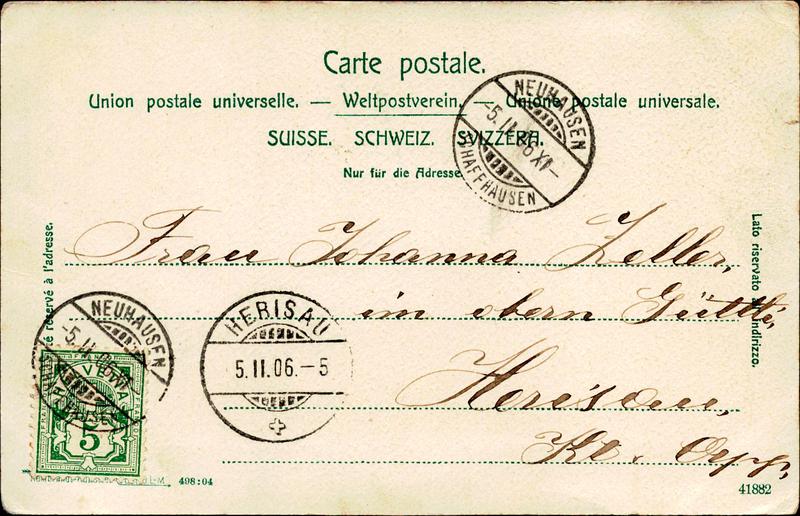 Carte postale.
Union postale universelle. — Weltpostverein. — Unione postale universale.
SUISSE. SCHWEIZ. SVIZZERA.
Nur für die Adresse
NEUHAUSEN
-5.II.06.XI-
SCHAFFHAUSEN
té réservé à l'adresse.
Lato riservato all'indirizzo.
Frau Johanna Zeller,
im obern Güttli,
Herisau,
Kt. App.
NEUHAUSEN
-5.II.06.XI
HERISAU
5.II.06.–5
FRANCO
HELVETIA
5
498:04
41882